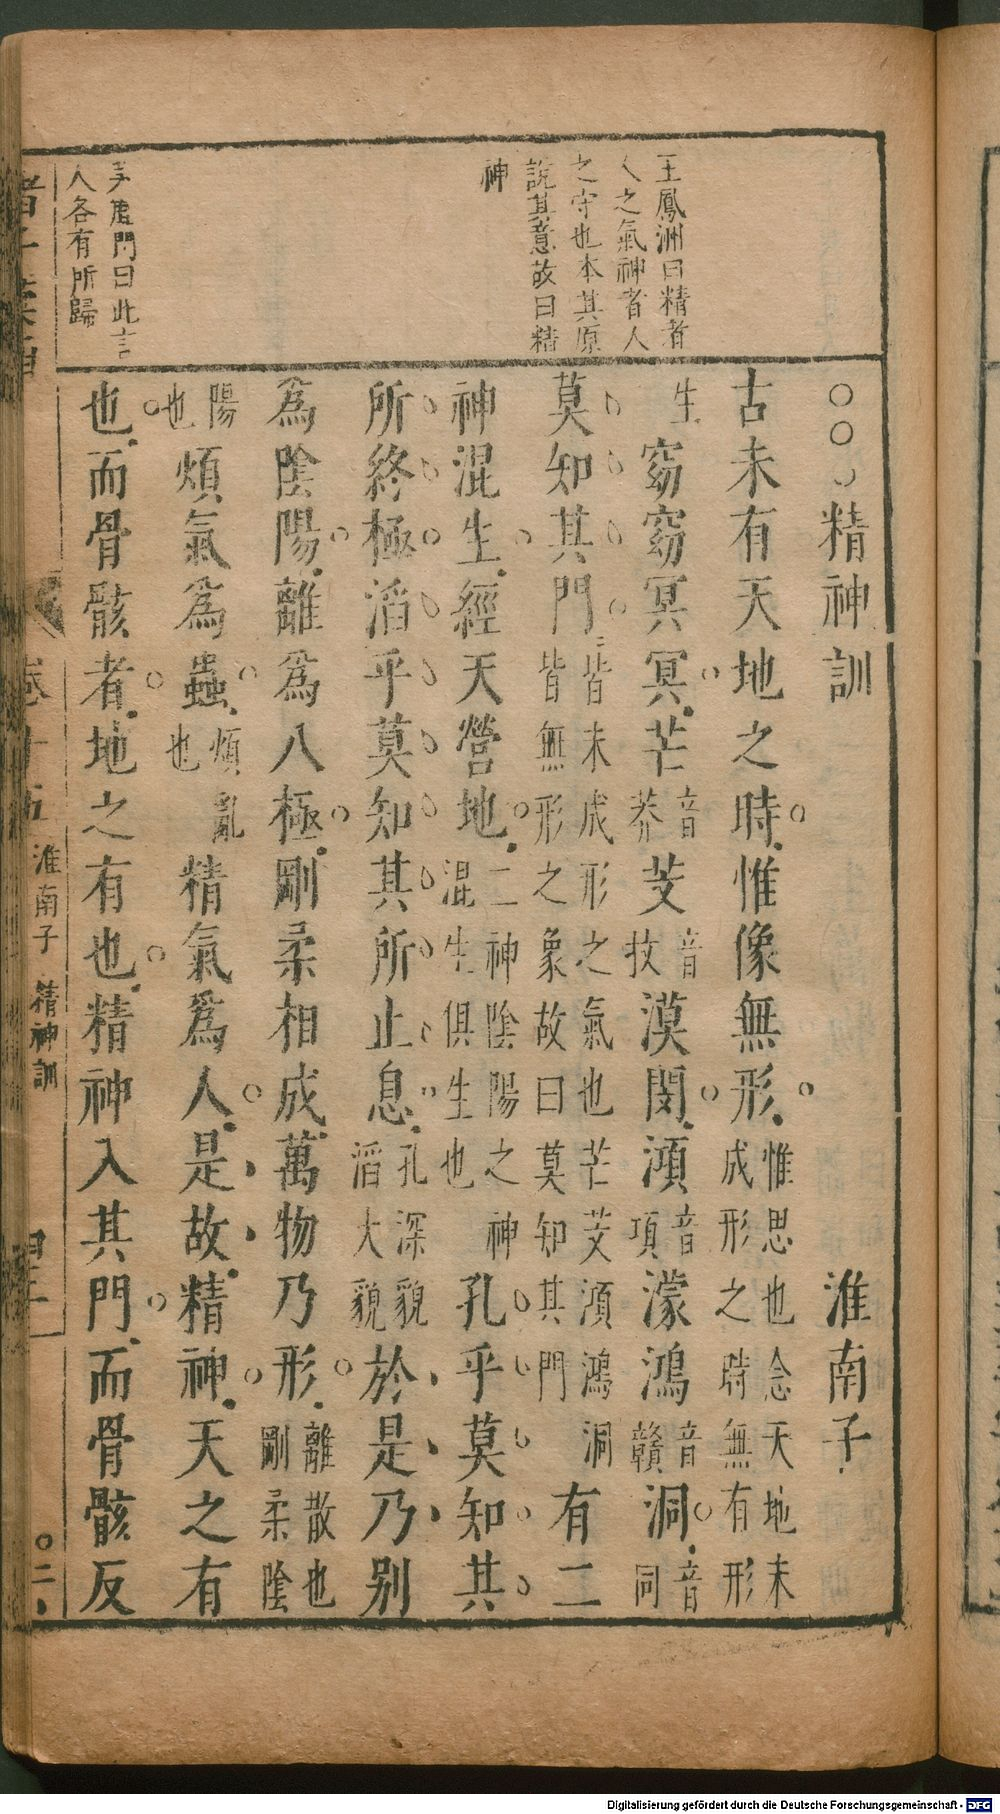 王鳳洲曰精者
人之氣神者人
之守也本其原
說其意故曰精
神
門曰此言
人各有所歸
○○○精神訓 淮南子
古未有天地之時惟像無形惟思也念天地未成形之時無有形
生窈窈冥冥芒音莽芠音抆漠閔澒音項濛鴻音贛洞音同
莫知其門皆未成形之氣也芒芠澒鴻洞皆無形之象故曰莫知其門有二
神混生經天營地二神陰陽之神混生俱生也孔乎莫知其
所終極滔乎莫知其所止息孔深貌滔大貌於是乃別
為陰陽離為八極剛柔相成萬物乃形離散也剛柔陰
陽也煩氣為蟲煩亂也精氣為人是故精神天之有
也而骨骸者地之有也精神入其門而骨骸反
淮南子 精神訓
二
Digitalisierung gefördert durch die Deutsche Forschungsgemeinschaft - DFG